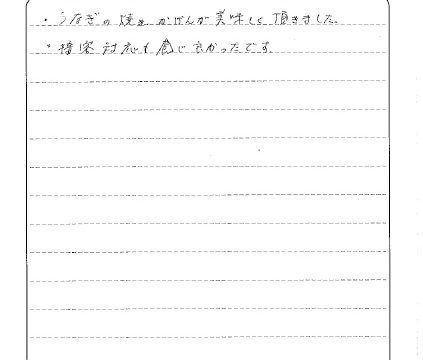 ・うなぎの焼きかげんが美味しく頂きました。
・接客対応も感じ良かったです。